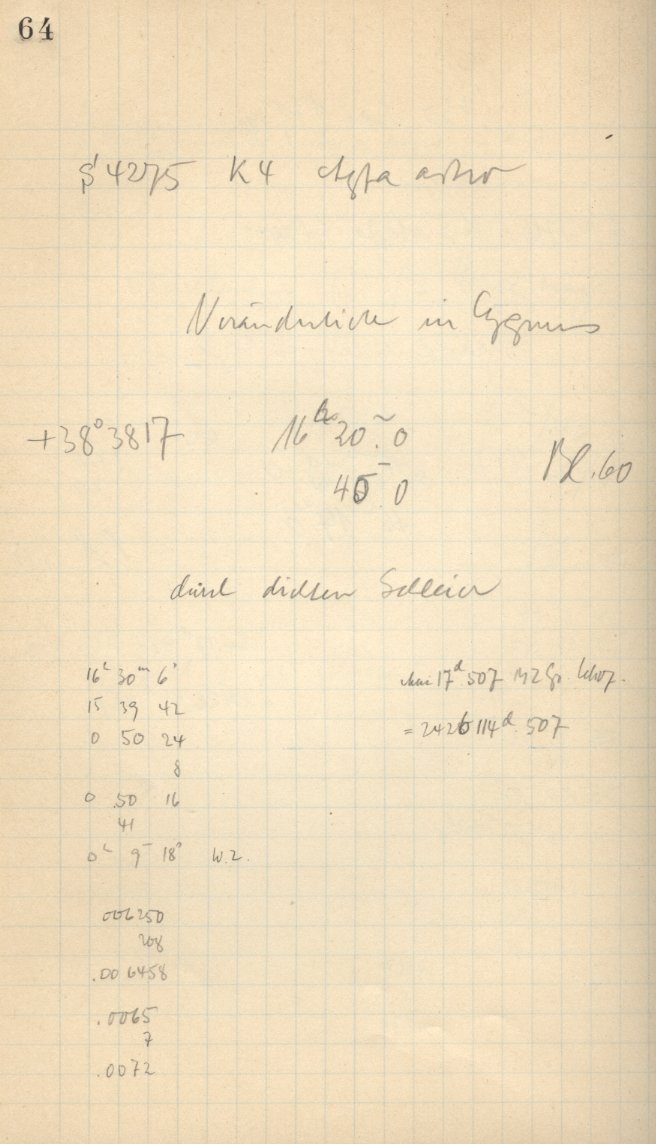 64
S 4275 K4 Agfa astro
Veränderliche in Cygnus
+38° 3817 16h 20m.0
45.0
Bl. 60
durch dichten Schleier
16h 30m 6s
15 39 42
0 50 24
8
0 50 16
41
0h 9m 18s W.Z.
.006250
208
.006458
.0065
7
.0072
17d 507 MZ Gr
= 2426114d.507